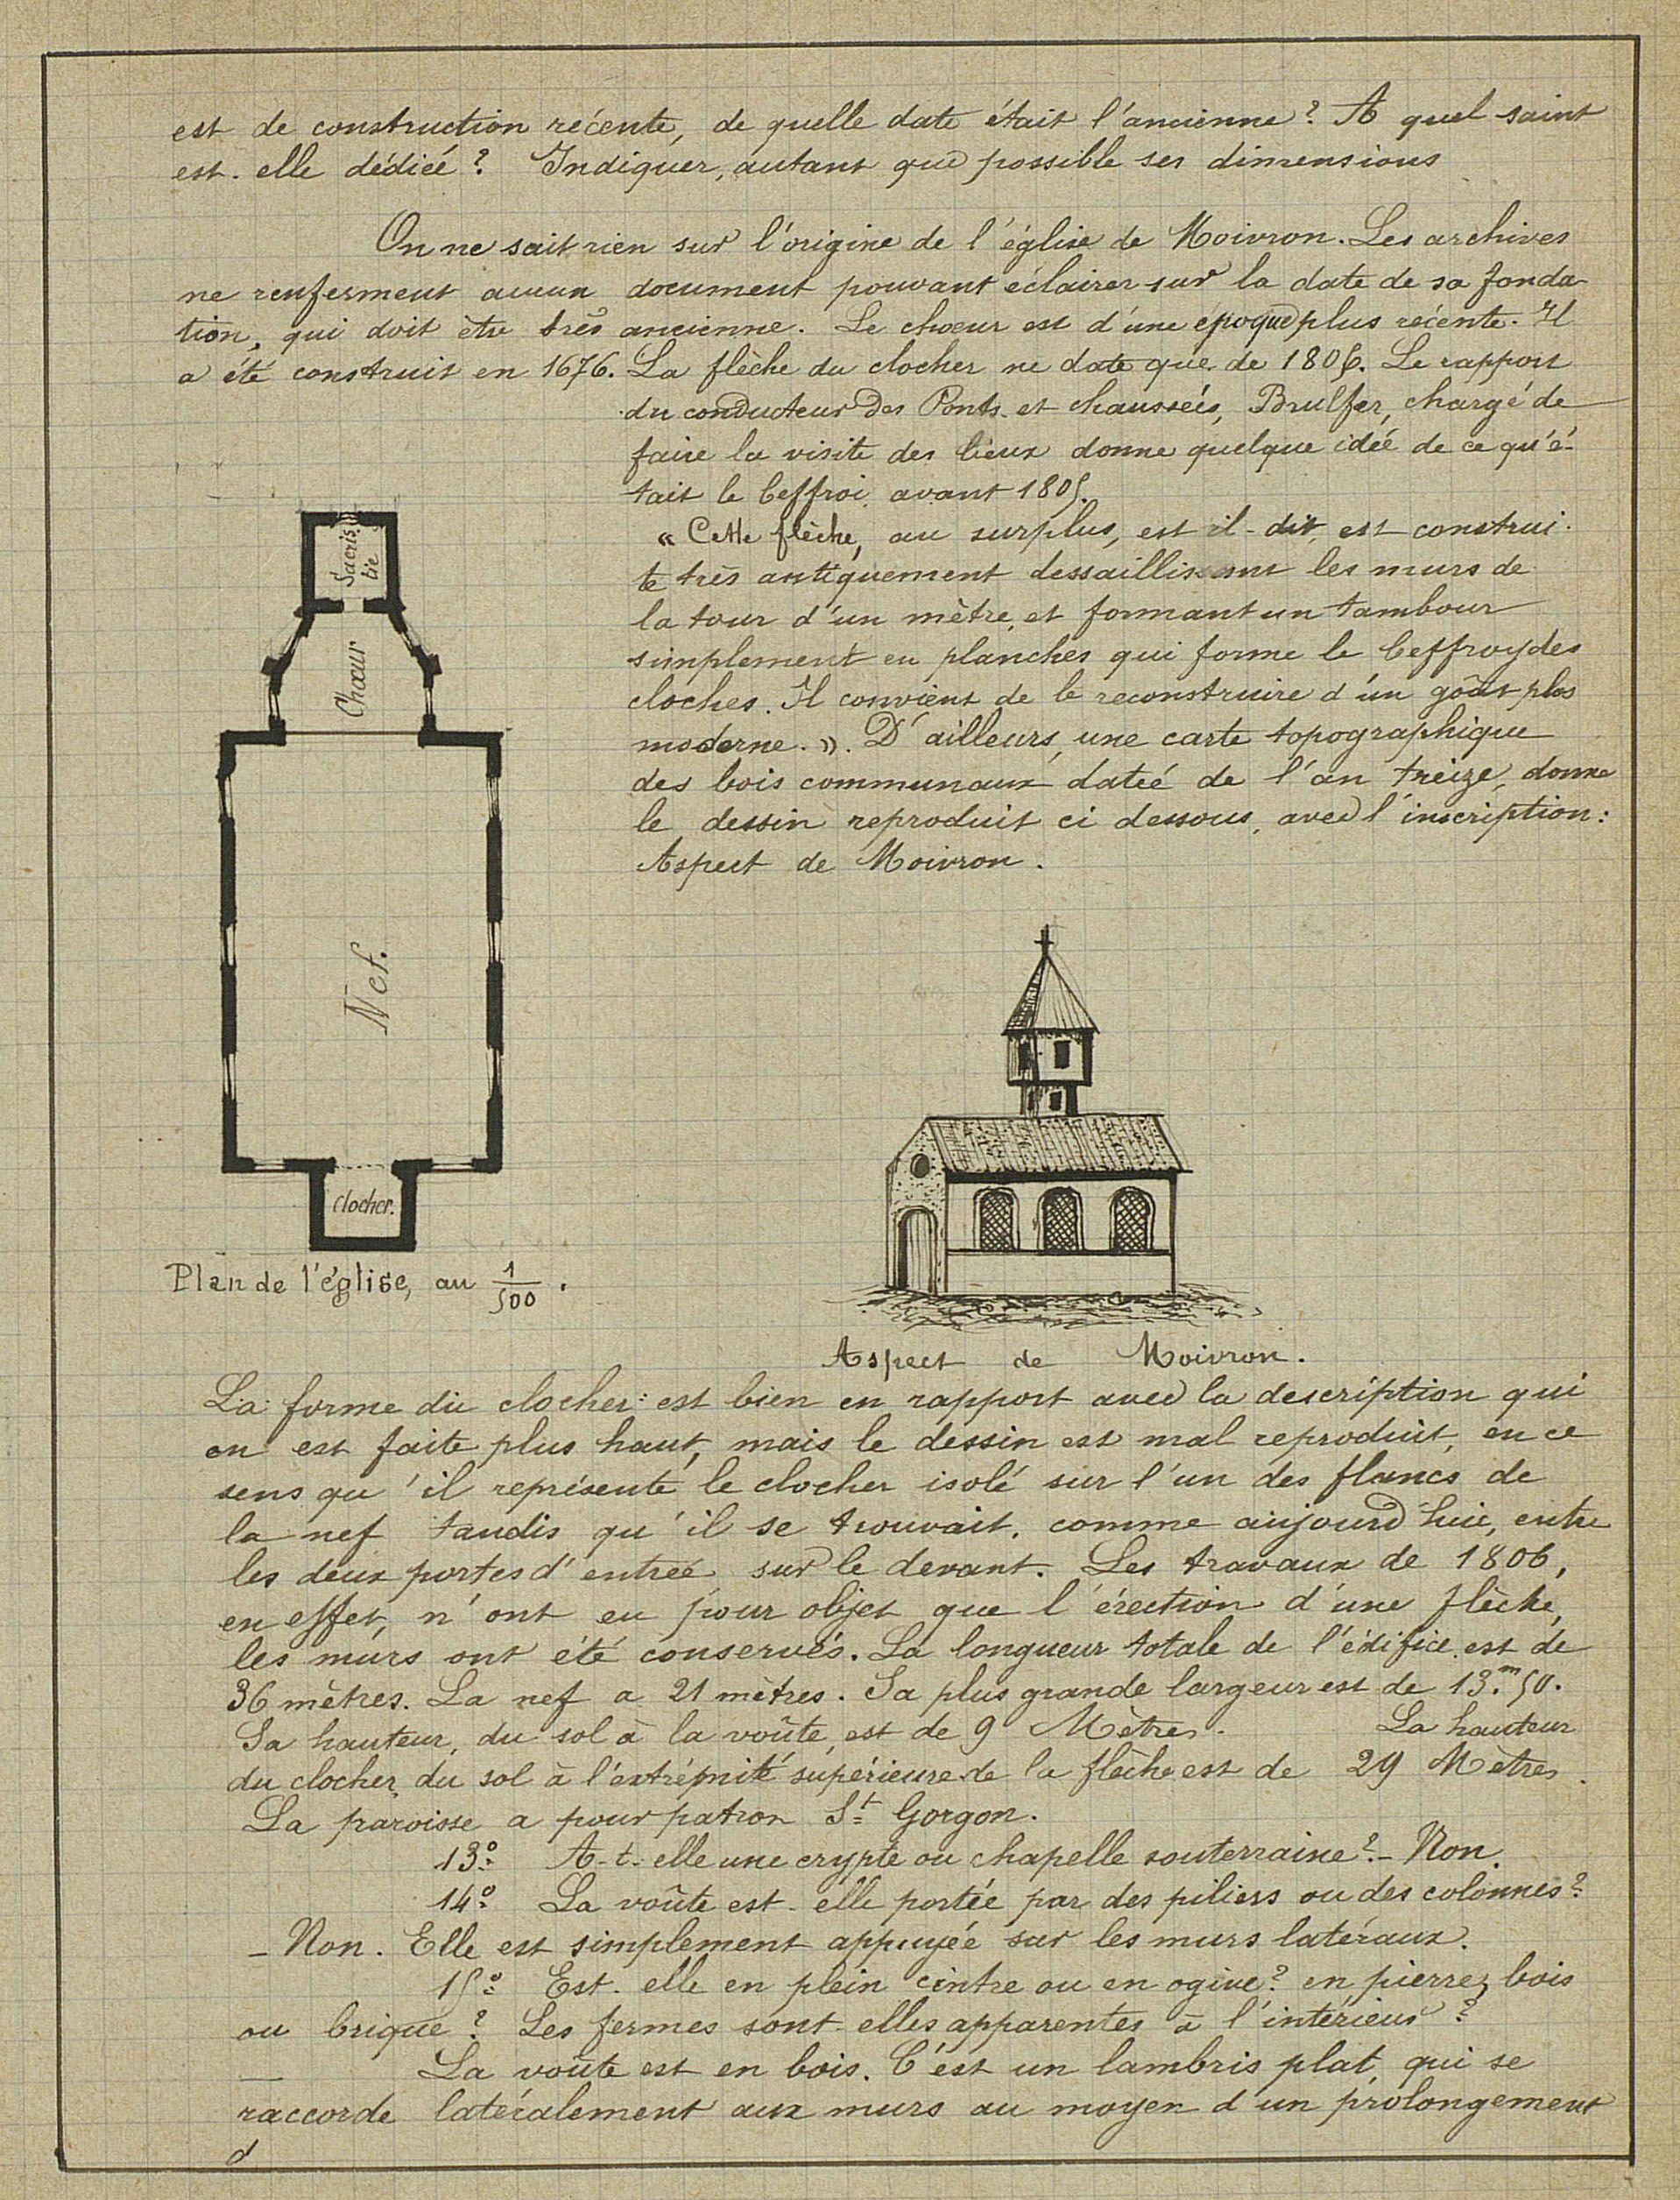 est de construction récente, de quelle date était l'ancienne? A quel saint
est-elle dédiée? Indiquer, autant que possible ses dimensions
On ne sait rien sur l'origine de l'église de Moivron. Les archives
ne renferment aucun document pouvant éclairer sur la date de sa fonda-
tion, qui doit être très ancienne. Le chœur est d'une époque plus récente. Il
a été construit en 1676. La flèche du clocher ne date que de 1806. Le rapport
du conducteur des Ponts et chaussées, Brulfer, chargé de
faire la visite des lieux donne quelque idée de ce qu'é-
tait le beffroi avant 1805.
« Cette flèche, au surplus, est-il dit, est construi-
te très antiquement dessaillissant les murs de
la tour d'un mètre, et formant un tambour
simplement en planches qui forme le beffroy des
cloches. Il convient de le reconstruire d'un goût plus
moderne. ». D'ailleurs, une carte topographique
des bois communaux datée de l'an treize, donne
le dessin reproduit ci dessous, avec l'inscription:
Aspect de Moivron.
Sacris-
tie
Chœur
Nef.
Clocher.
Plan de l'église, au 1/500.
Aspect de Moivron.
La forme du clocher est bien en rapport avec la description qui
en est faite plus haut, mais le dessin est mal reproduit, en ce
sens qu'il représente le clocher isolé sur l'un des flancs de
la nef tandis qu'il se trouvait, comme aujourd'hui, entre
les deux portes d'entrée sur le devant. Les travaux de 1806,
en effet, n'ont eu pour objet que l'érection d'une flèche,
les murs ont été conservés. La longueur totale de l'édifice est de
36 mètres. La nef a 21 mètres. Sa plus grande largeur est de 13.m50.
Sa hauteur, du sol à la voûte, est de 9 Mètres. La hauteur
du clocher, du sol à l'extrémité supérieure de la flèche est de 29 Mètres.
La paroisse a pour patron St Gorgon.
13° A-t-elle une crypte ou chapelle souterraine? - Non.
14° La voûte est-elle portée par des piliers ou des colonnes?
- Non. Elle est simplement appuyée sur les murs latéraux.
15° Est-elle en plein cintre ou en ogive? en pierre, bois
ou brique? Les fermes sont-elles apparentes à l'intérieur?
— La voûte est en bois. C'est un lambris plat, qui se
raccorde latéralement aux murs au moyen d'un prolongement
d